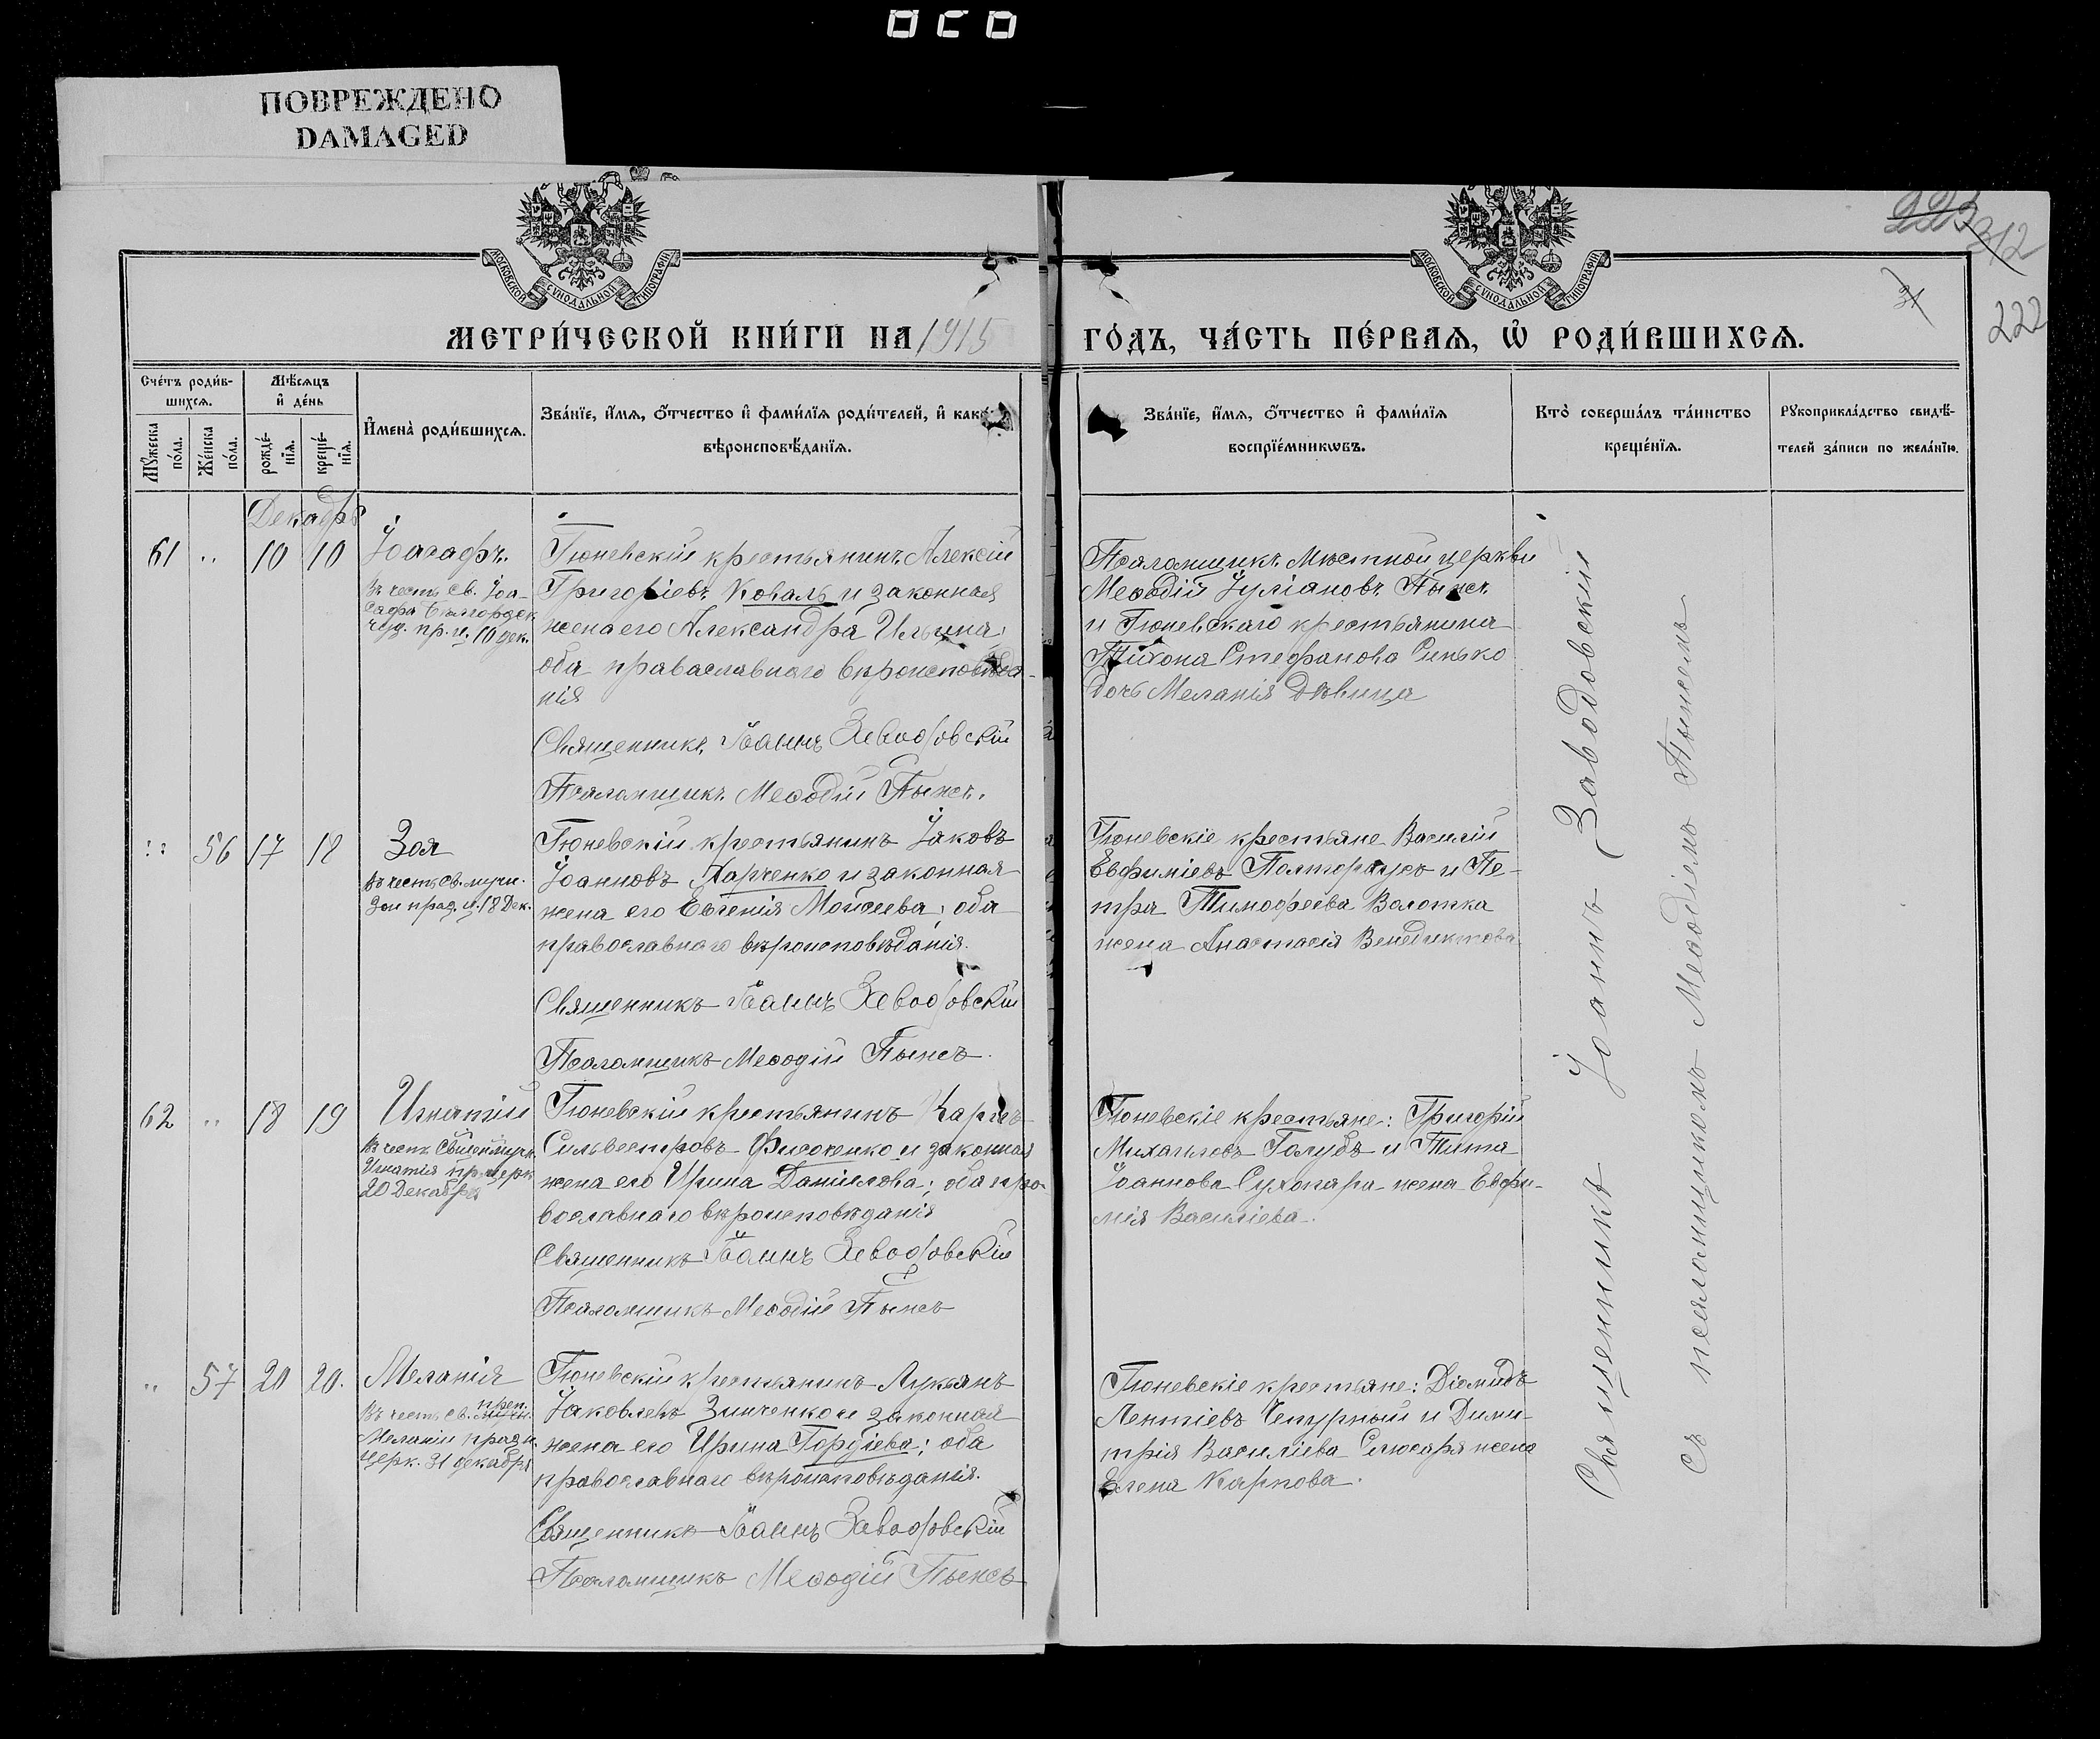 ПОВРЕЖДЕНО
DAMAGED
МОСКОВСКОЙ СѴНОДАЛЬНОЙ ТИПОГРАФІИ
МОСКОВСКОЙ СѴНОДАЛЬНОЙ ТИПОГРАФІИ
223
312
31
222
МЕТРИ́ЧЕСКОЙ КНИ́ГИ НА 1915
ГО́ДЪ, ЧА́СТЬ ПЕ́РВАѦ, Ѡ҆ РОДИ́ВШИХСѦ.
Сче́тъ роди́в-
шихсѧ.
Мѣ́сѧцъ
и҆ де́нь
Мꙋ́жеска
по́ла.
Же́нска
по́ла.
рожде́-
нїѧ.
креще́-
нїѧ.
И҆мена̀ роди́вшихсѧ.
Зва́нїе, и҆́мѧ, ѻ҆́тчество и҆ фами́лїѧ роди́телей, и҆ како́
вѣроисповѣ́данїѧ.
Зва́нїе, и҆́мѧ, ѻ҆́тчество и҆ фами́лїѧ
воспрїе́мникѡвъ.
Кто̀ соверша́лъ та́инство
креще́нїѧ.
Рꙋкоприкла́дство свидѣ́-
телей за́писи по жела́нїю.
Декабрь
61 " 10 10
Іоасафъ.
Въ честь св. Іоа-
сафа Бѣлгородск.
чуд. пр. ц. 10 дек.
Гюневскій крестьянинъ Алексій
Григоріевъ Коваль и законная
жена его Александра Ильина;
оба православнаго вѣроисповѣда-
нія
Священникъ Іоаннъ Заводовскій
Псаломщикъ Меѳодій Пынсъ.
Псаломщикъ Мѣстной церкви
Меѳодій Іуліановъ Пынсъ
и Гюневскаго крестьянина
Тихона Стефанова Синько
дочь Меланія дѣвица
" 56 17 18
Зоя
Въ честь св. мучи.
Зои празд. ц. 18 Дек.
Гюневскій крестьянинъ Іаковъ
Іоанновъ Харченко и законная
жена его Евгенія Мойсеева; оба
православнаго вѣроисповѣданія.
Священникъ Іоаннъ Заводовскій
Псаломщикъ Меѳодій Пынсъ.
Гюневскіе крестьяне Василій
Евфиміевъ Полторацъ и Пе-
тра Тимофеева Волотка
жена Анастасія Венедиктова
62 " 18 19
Игнатій
Въ честь Священмуч.
Игнатія пр. церк.
20 Декабря
Гюневскій крестьянинъ Карпъ
Сильвестровъ Фисоченко и законная
жена его Ирина Даніилова; оба пра-
вославнаго вѣроисповѣданія
Священникъ Іоаннъ Заводовскій
Псаломщикъ Меѳодій Пынсъ
Гюневскіе крестьяне: Григорій
Михаиловъ Голубъ и Тита
Іоаннова Сухопара жена Евфи-
мія Василіева.
" 57 20 20.
Меланія
прен.
Въ честь св. мучен.
Меланіи праздн.
церк. 31 декабря
Гюневскій крестьянинъ Лукьянъ
Іаковлевъ Зинченко и законная
жена его Ирина Гордіева; оба
православнаго вѣроисповѣданія.
Священникъ Іоаннъ Заводовскій
Псаломщикъ Меѳодій Пынсъ
Гюневскіе крестьяне: Діомидъ
Лентіевъ Чепурный и Дими-
трія Василіева Слюсаря жена
Елена Карпова.
Священникъ Іоаннъ Заводовскій
съ псаломщикомъ Меѳодіемъ Пынсомъ